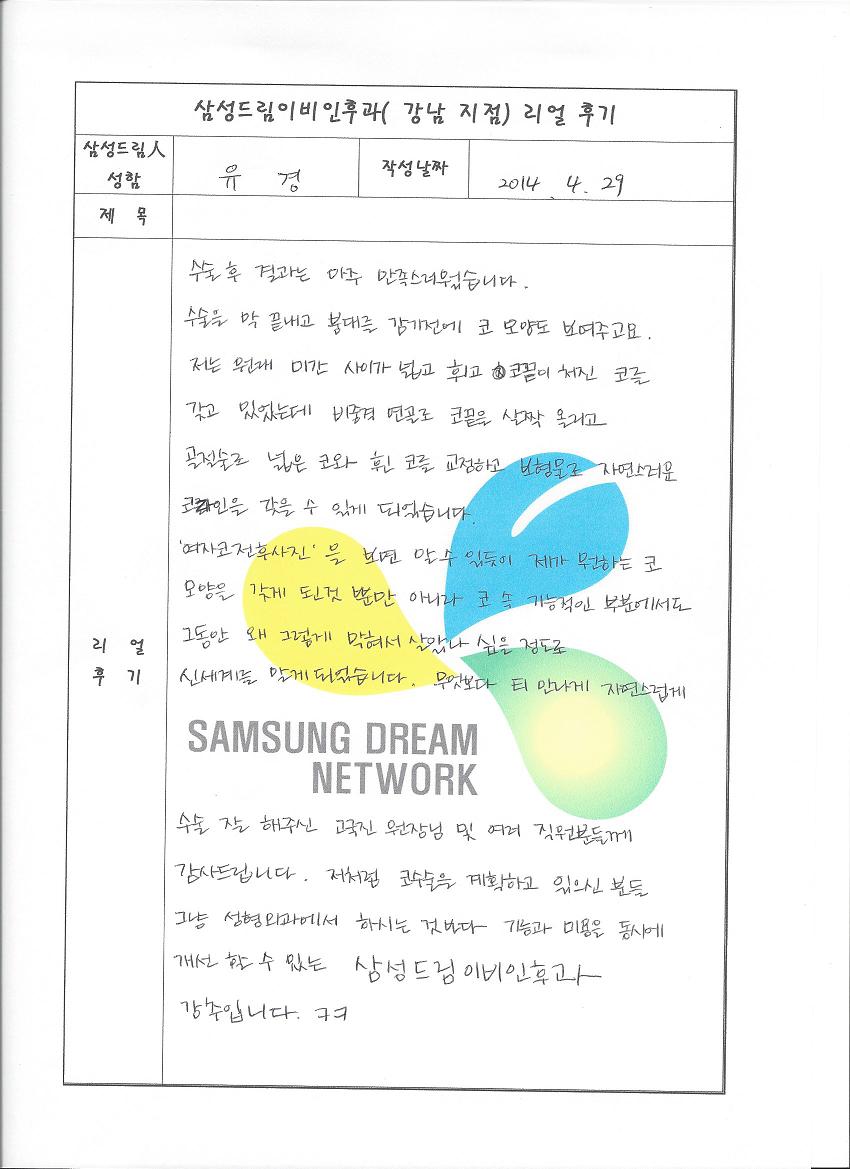 삼성드림이비인후과( 강남 지점) 리얼 후기
삼성드림人 성함
유 경
작성날짜
2014. 4. 29
제 목
리 얼 후 기
수술 후 결과는 아주 만족스러웠습니다.
수술을 막 끝내고 붕대를 감기전에 코 모양도 보여주고요.
저는 원래 미간 사이가 넓고 휘고 코끝이 처진 코를
갖고 있었는데 비중격 연골로 코끝을 살짝 올리고
골절술로 넓은 코와 휜 코를 교정하고 보형물로 자연스러운
코라인을 갖을 수 있게 되었습니다.
'여자코전후사진' 을 보면 알수 있듯이 제가 원하는 코
모양을 갖게 된것 뿐만 아니라 코 속 기능적인 부분에서도
그동안 왜 그렇게 막혀서 살았나 싶은 정도로
신세계를 알게 되었습니다. 무엇보다 티 안나게 자연스럽게
SAMSUNG DREAM
NETWORK
수술 잘 해주신 고국진 원장님 및 여러 직원분들께
감사드립니다. 저처럼 코수술을 계획하고 있으신 분들
그냥 성형외과에서 하시는 것보다 기능과 미용을 동시에
개선 할 수 있는 삼성드림이비인후과
강추입니다. ㅋㅋ